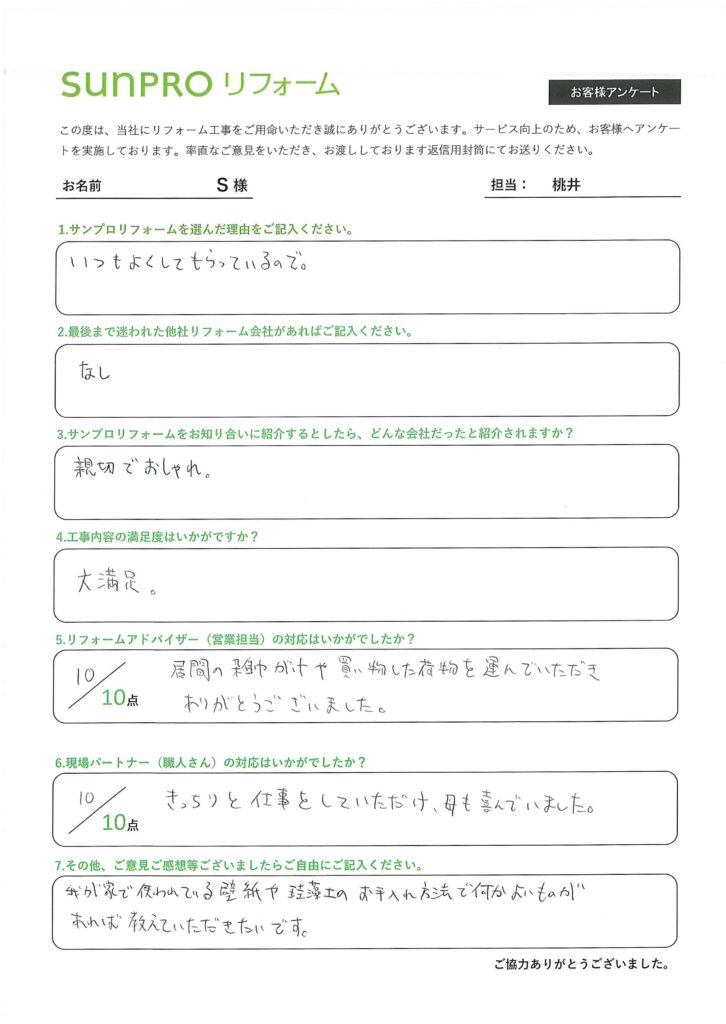 SUNPRO リフォーム
お客様アンケート
この度は、当社にリフォーム工事をご用命いただき誠にありがとうございます。サービス向上のため、お客様へアンケー
トを実施しております。率直なご意見をいただき、お渡ししております返信用封筒にてお送りください。
お名前 S 様 担当： 桃井
1.サンプロリフォームを選んだ理由をご記入ください。
いつもよくしてもらっているので。
2.最後まで迷われた他社リフォーム会社があればご記入ください。
なし
3.サンプロリフォームをお知り合いに紹介するとしたら、どんな会社だったと紹介されますか？
親切でおしゃれ。
4.工事内容の満足度はいかがですか？
大満足。
5.リフォームアドバイザー（営業担当）の対応はいかがでしたか？
10/10点
居間の雑巾がけや買い物した荷物を運んでいただき
ありがとうございました。
6.現場パートナー（職人さん）の対応はいかがでしたか？
10/10点
きっちりと仕事をしていただけ、母も喜んでいました。
7.その他、ご意見ご感想等ございましたらご自由にご記入ください。
我が家で使われている壁紙や珪藻土のお手入れ方法で何かよいものが
あれば教えていただきたいです。
ご協力ありがとうございました。